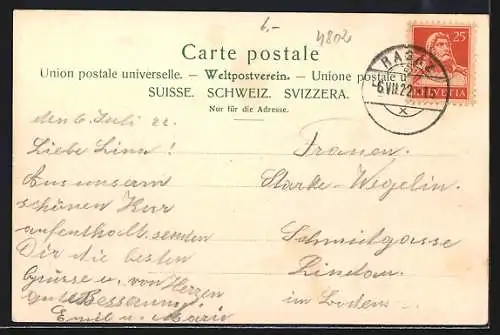 6.-
4802
Carte postale
Union postale universelle. — Weltpostverein. — Unione postale u
SUISSE. SCHWEIZ. SVIZZERA.
Nur für die Adresse.
25
HELVETIA
RAGAZ
6 VII 22
X
den 6. Juli 22.
Liebe Lina!
Aus unserm
schönen Kur
aufenthalt senden
Dir die besten
Grüsse u. von Herzen
gute Besserung
Emil u. Marie
Frauen
Starke-Wegelin.
Schmidgasse
Lindau
im Bodens